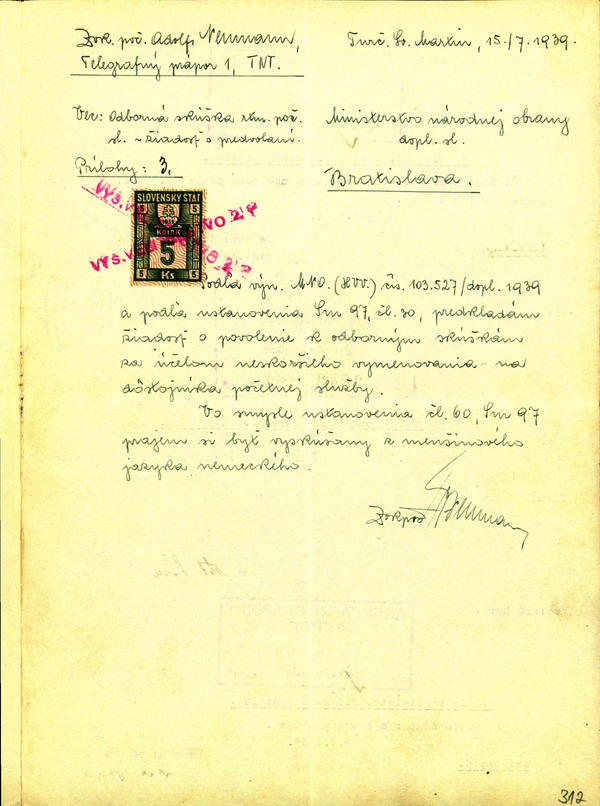 Zbr. poč. Adolf Neumann,
Telegrafný prápor 1, TNT.
Turč. Sv. Martin, 15./7. 1939.
Vec: Odborná skúška rtm. poč.
sl. - žiadosť o predvolaní.
Prílohy: 3.
Ministerstvo národnej obrany
dopl. sl.
Bratislava.
SLOVENSKÝ ŠTÁT
KOLOK
5 5
5
5 5
Ks
Podľa výn. MNO. (HVV.) čís. 103.527/dopl. 1939
a podľa ustanovenia Sm 97, čl. 30, predkladám
žiadosť o povolenie k odborným skúškám
za účelom neskoršieho vymenovania na
dôstojníka početnej služby.
Vo smysle ustanovenia čl. 60, Sm 97
prajem si byť vyskúšaný z menšinového
jazyka nemeckého.
Neumann
312